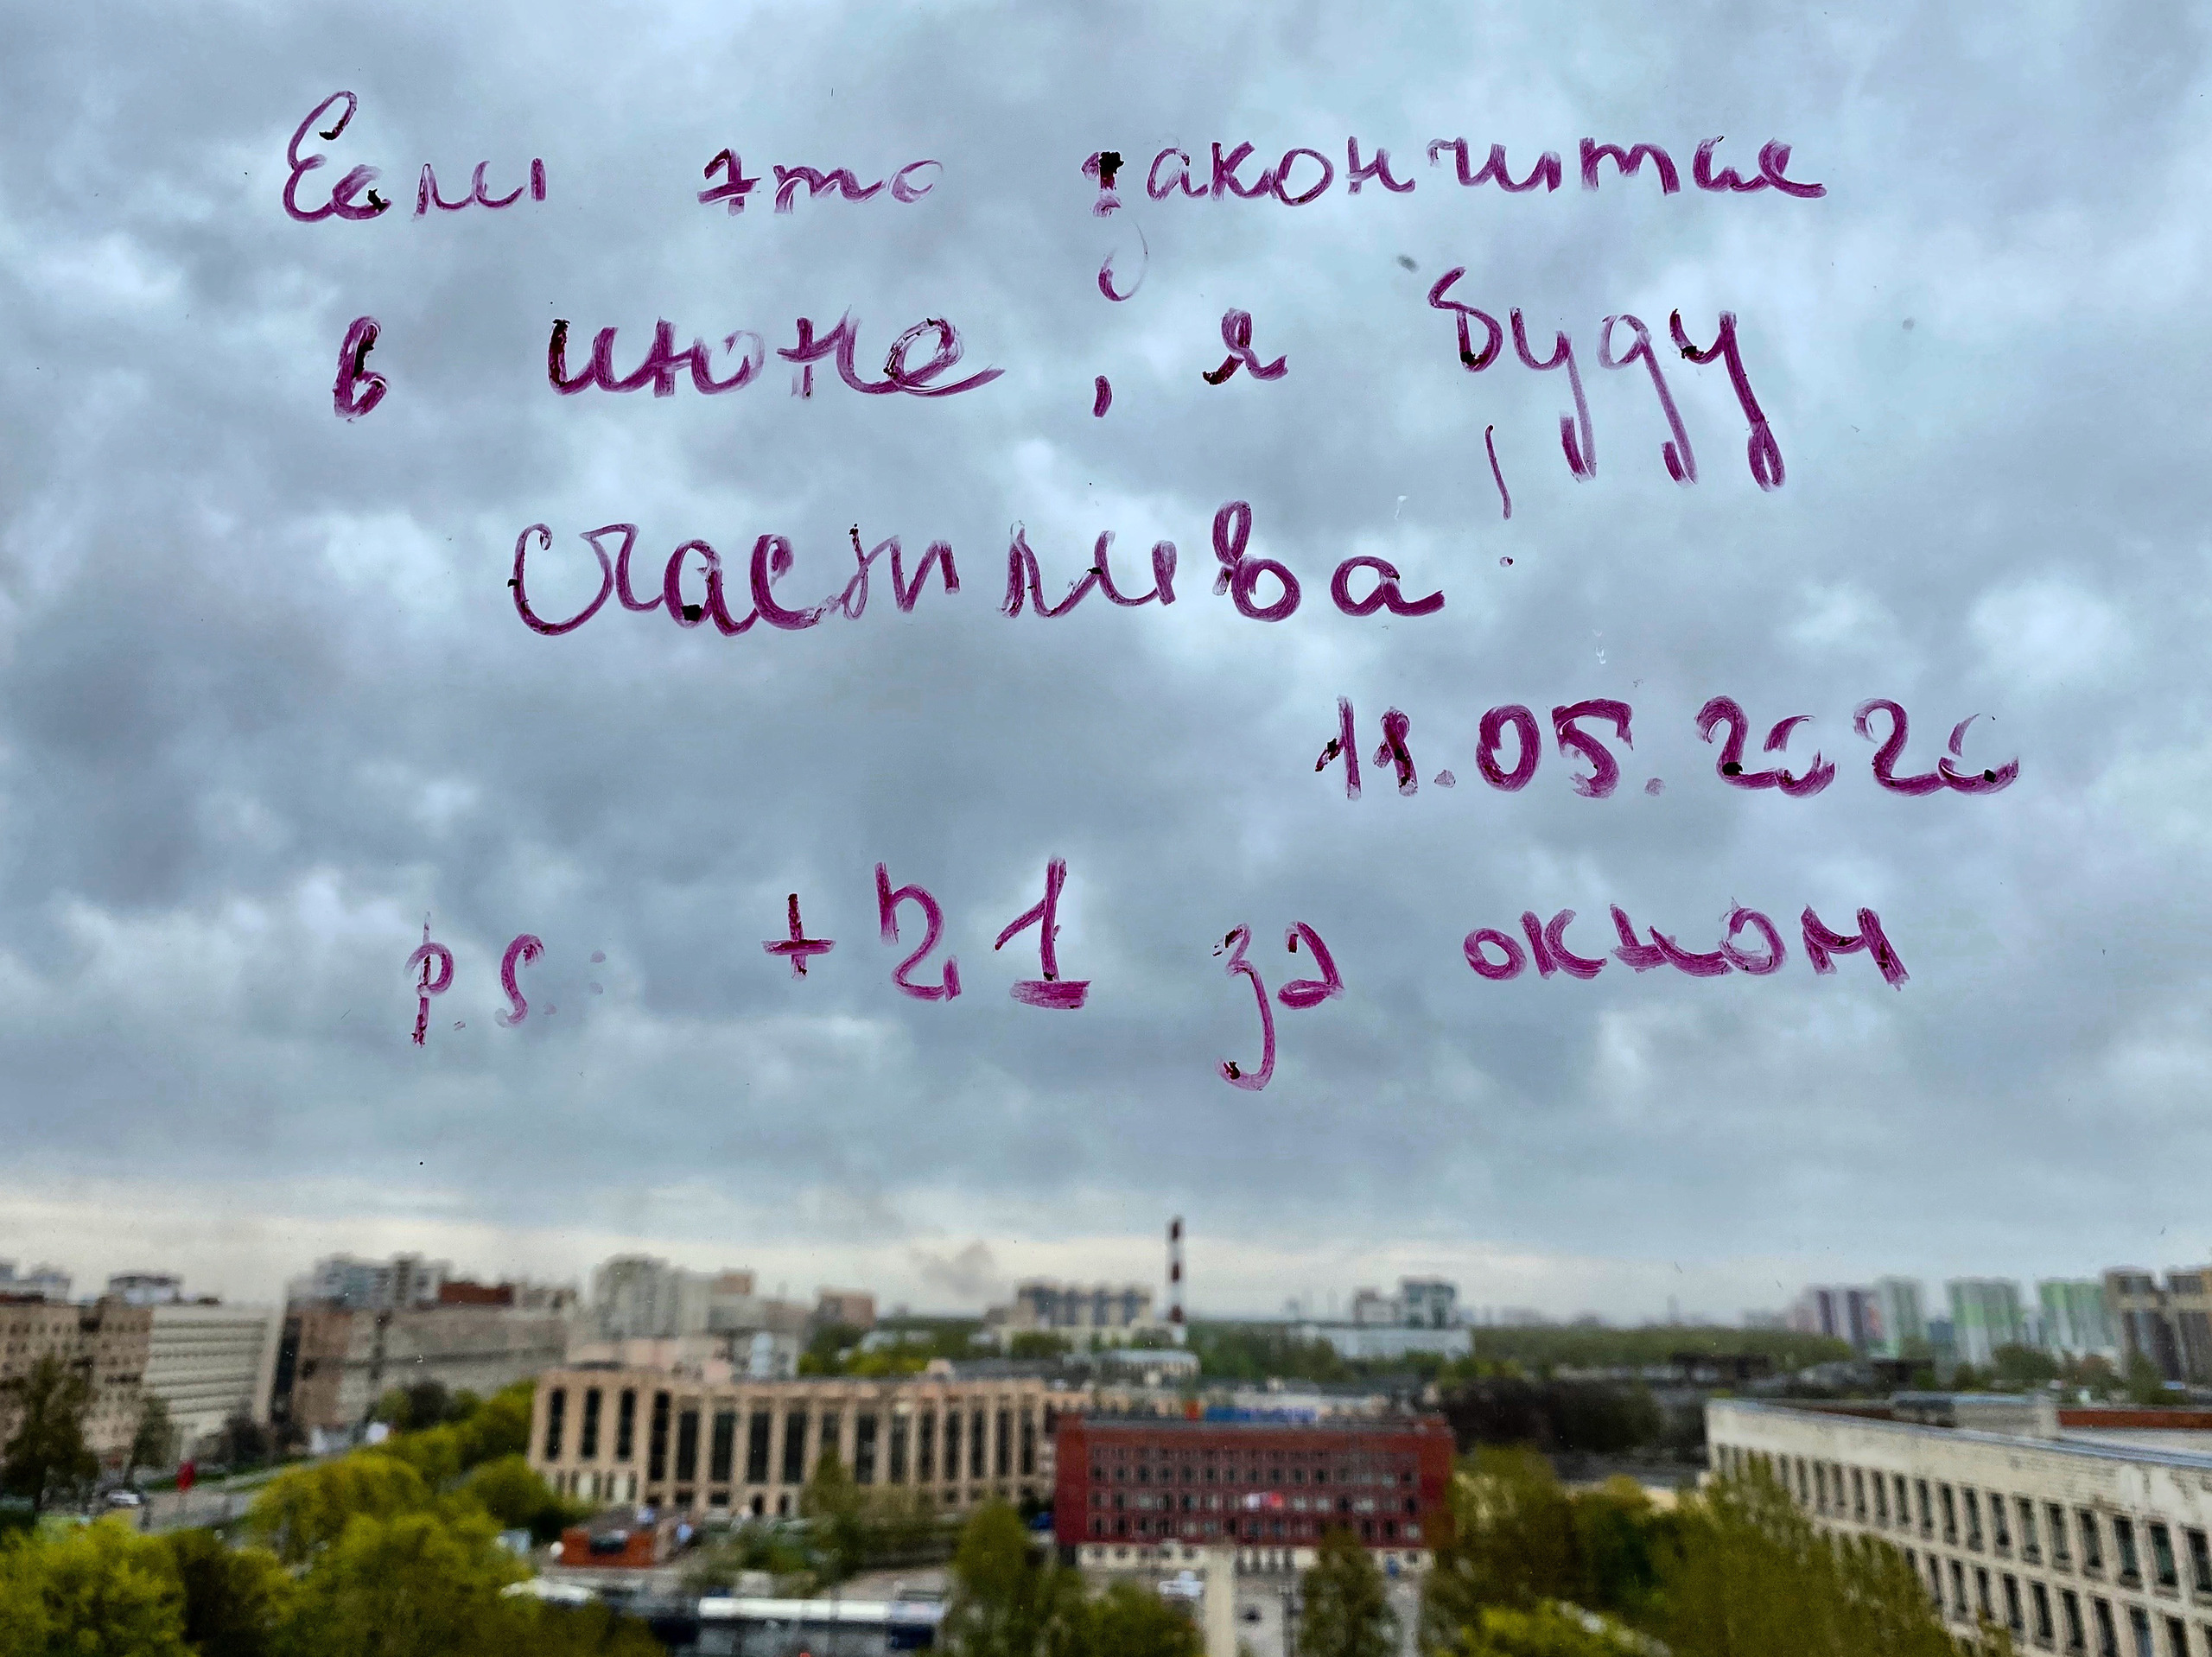 Если это закончится
в июне, я буду
счастлива!
11.05.2020
p.s.: +21 за окном